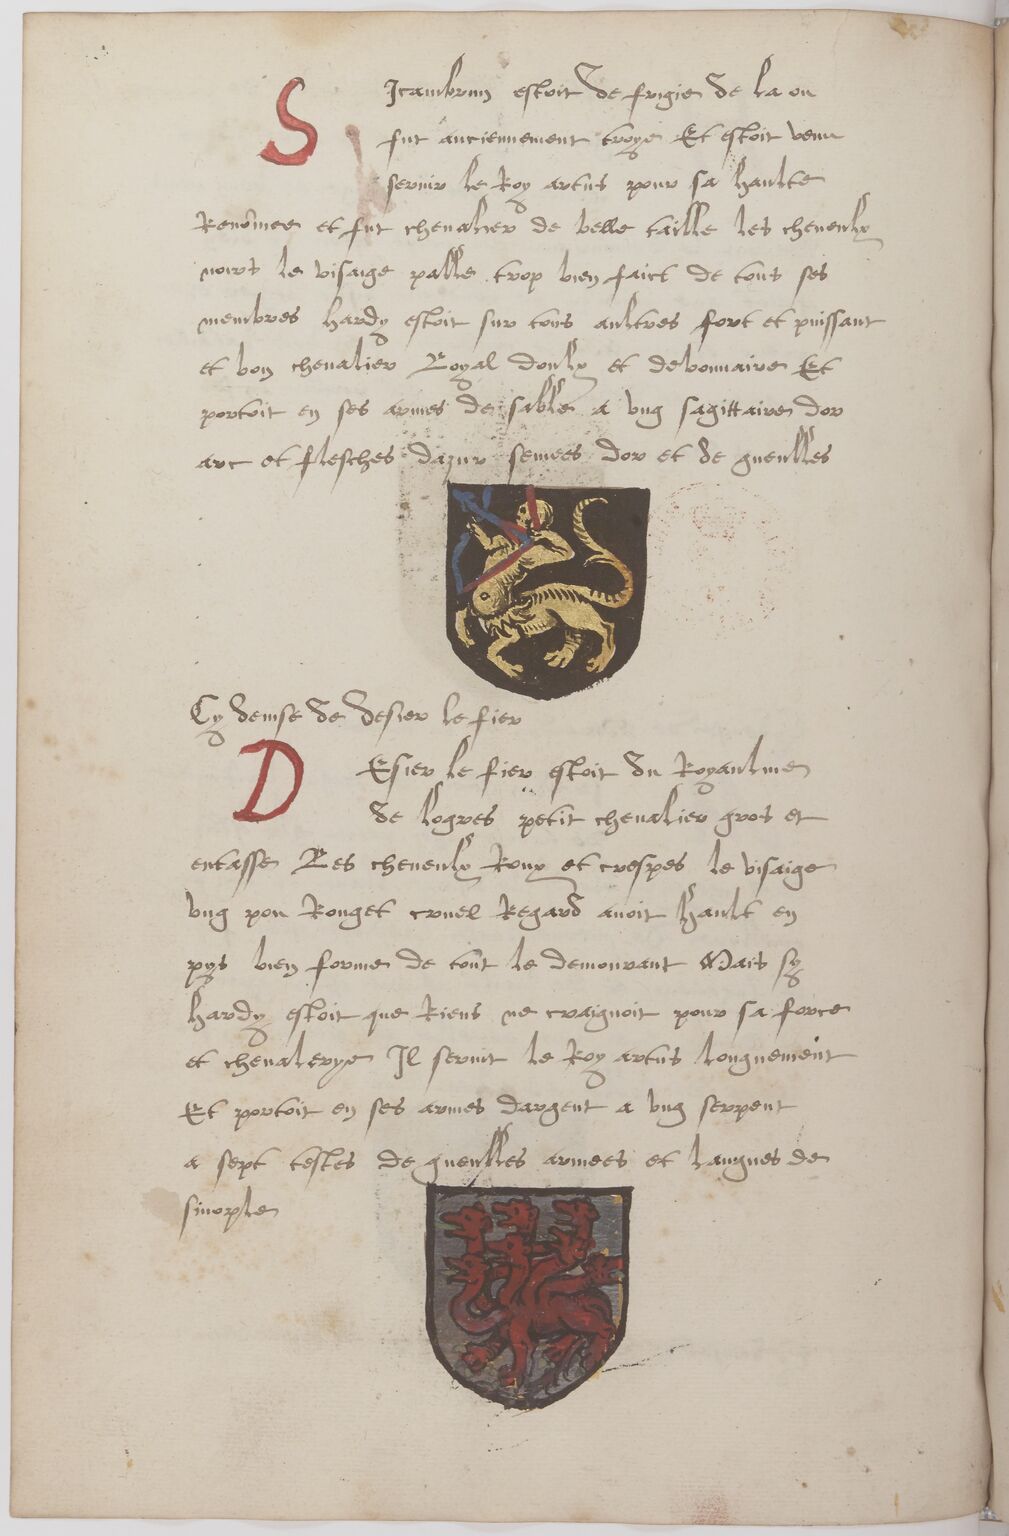 SIcambrun estoit de frigie de la ou
fut anciennement troye Et estoit venu
seruir le Roy artus pour sa haulte
Renōmee et fut cheualier de belle taille les cheueulx
noirs le visaige palle trop bien faict de tous ses
membres hardy estoit sur tous aultres fort et puissant
et bon cheualier Loyal doulx et debonnaire Et
portoit en ses armes de sable a vng sagittaire dor
arc et flesches dazur semees dor et de gueulles
Cy deuise de desier le fier
DEsier le fier estoit du Royaulme
de logres petit cheualier gros et
entasse Les cheueulx Roux et crespes le visaige
vng pou Rouget cruel Regard auoit hault en
pys bien forme de tout le demourant Mais sy
hardy estoit que Riens ne craignoit pour sa force
et cheualerye Il seruit le Roy artus longuement
Et portoit en ses armes dargent a vng serpent
a sept testes de gueulles armees et langues de
sinople